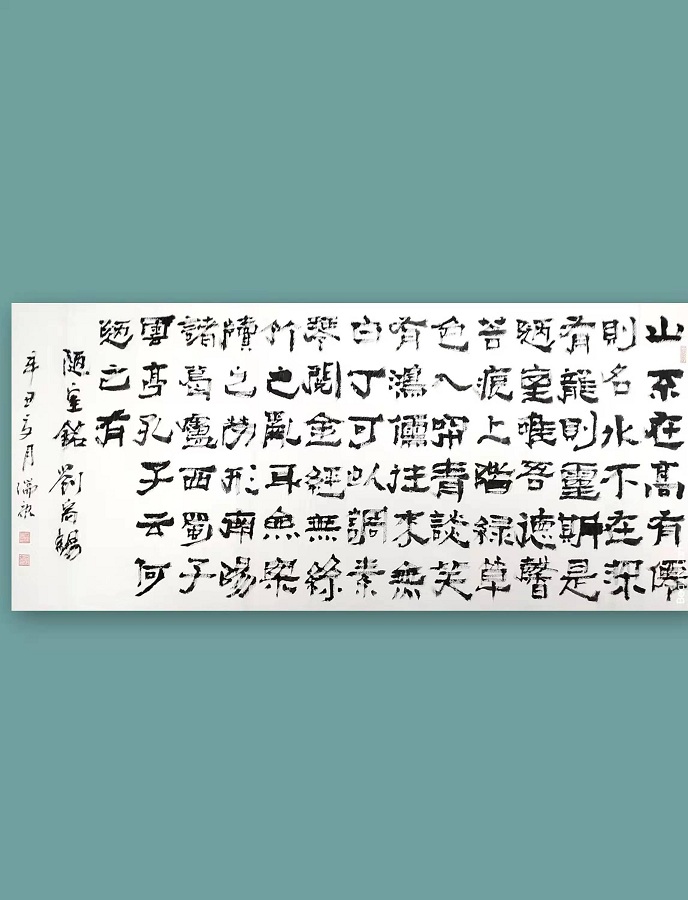 山不在高有僊
則名水不在深
有龍則靈斯是
陋室唯吾德馨
苔痕上階緑草
色入簾青談笑
有鴻儒往來無
白丁可以調素
琴閲金經無絲
竹之亂耳無案
牘之勞形南陽
諸葛廬西蜀子
雲亭孔子云何
陋之有
陋室銘劉禹錫
辛丑月